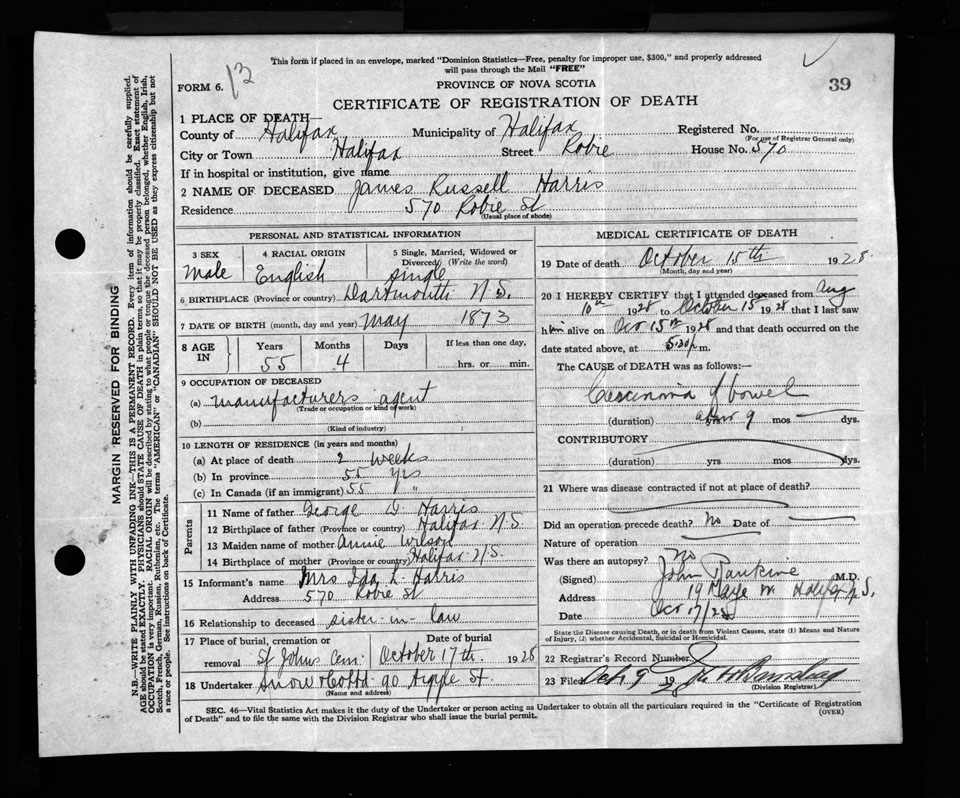 This form if placed in an envelope, marked "Dominion Statistics—Free, penalty for improper use, $300," and properly addressed
will pass through the Mail "FREE"
FORM 6. 13
PROVINCE OF NOVA SCOTIA
39
CERTIFICATE OF REGISTRATION OF DEATH
1 PLACE OF DEATH—
County of Halifax Municipality of Halifax Registered No.
(For use of Registrar General only)
City or Town Halifax Street Robie House No. 570
If in hospital or institution, give name
2 NAME OF DECEASED James Russell Harris
Residence 570 Robie St
(Usual place of abode)
PERSONAL AND STATISTICAL INFORMATION
3 SEX 4 RACIAL ORIGIN 5 Single, Married, Widowed or
Divorced (Write the word)
Male English single
6 BIRTHPLACE (Province or country) Dartmouth N.S.
7 DATE OF BIRTH (month, day and year) May 1873
8 AGE IN Years Months Days If less than one day,
55 4 hrs. or min.
9 OCCUPATION OF DECEASED
(a) manufacturers agent
(Trade or occupation or kind of work)
(b)
(Kind of industry)
10 LENGTH OF RESIDENCE (in years and months)
(a) At place of death 2 weeks
(b) In province 55 yrs
(c) In Canada (if an immigrant) 55 "
Parents
11 Name of father George D. Harris
12 Birthplace of father (Province or country) Halifax N.S.
13 Maiden name of mother Annie Wilson
14 Birthplace of mother (Province or country) Halifax N.S.
15 Informant's name Mrs Ida L. Harris
Address 570 Robie St
16 Relationship to deceased sister-in-law
17 Place of burial, cremation or Date of burial
removal St Johns Cem. October 17th. 1928
18 Undertaker Snow & Co Ltd 90 Argyle St.
(Name and address)
MEDICAL CERTIFICATE OF DEATH
19 Date of death October 15th 1928.
(Month, day and year)
20 I HEREBY CERTIFY that I attended deceased from Aug
10th 1928 to October 15 1928 that I last saw
him alive on Oct 15th 1928 and that death occurred on the
date stated above, at 5.30 p.m.
The CAUSE of DEATH was as follows:—
Carcinoma of bowel
(duration) yrs 9 mos dys.
CONTRIBUTORY
(duration) yrs mos dys.
21 Where was disease contracted if not at place of death?
Did an operation precede death? No Date of
Nature of operation
Was there an autopsy? No
(Signed) John Rankine M.D.
Address Halifax N.S.
Date Oct 17/28
State the Disease causing Death, or in death from Violent Causes, state (1) Means and Nature
of Injury, (2) whether Accidental, Suicidal or Homicidal.
22 Registrar's Record Number
23 Filed Oct 19 1928
(Division Registrar)
SEC. 46—Vital Statistics Act makes it the duty of the Undertaker or person acting as Undertaker to obtain all the particulars required in the "Certificate of Registration
of Death" and to file the same with the Division Registrar who shall issue the burial permit.
(OVER)
MARGIN RESERVED FOR BINDING
N.B.—WRITE PLAINLY WITH UNFADING INK—THIS IS A PERMANENT RECORD. Every item of information should be carefully supplied.
AGE should be stated EXACTLY. PHYSICIANS should STATE CAUSE OF DEATH in plain terms, so that it may be properly classified. Exact statement of
OCCUPATION is very important. RACIAL ORIGIN will be described by stating to what people or tongue the deceased person belonged, whether English, Irish,
Scotch, French, German, Russian, Ruthenian, etc. The terms "AMERICAN" or "CANADIAN" SHOULD NOT BE USED as they express citizenship but not
a race or people. See instructions on back of Certificate.